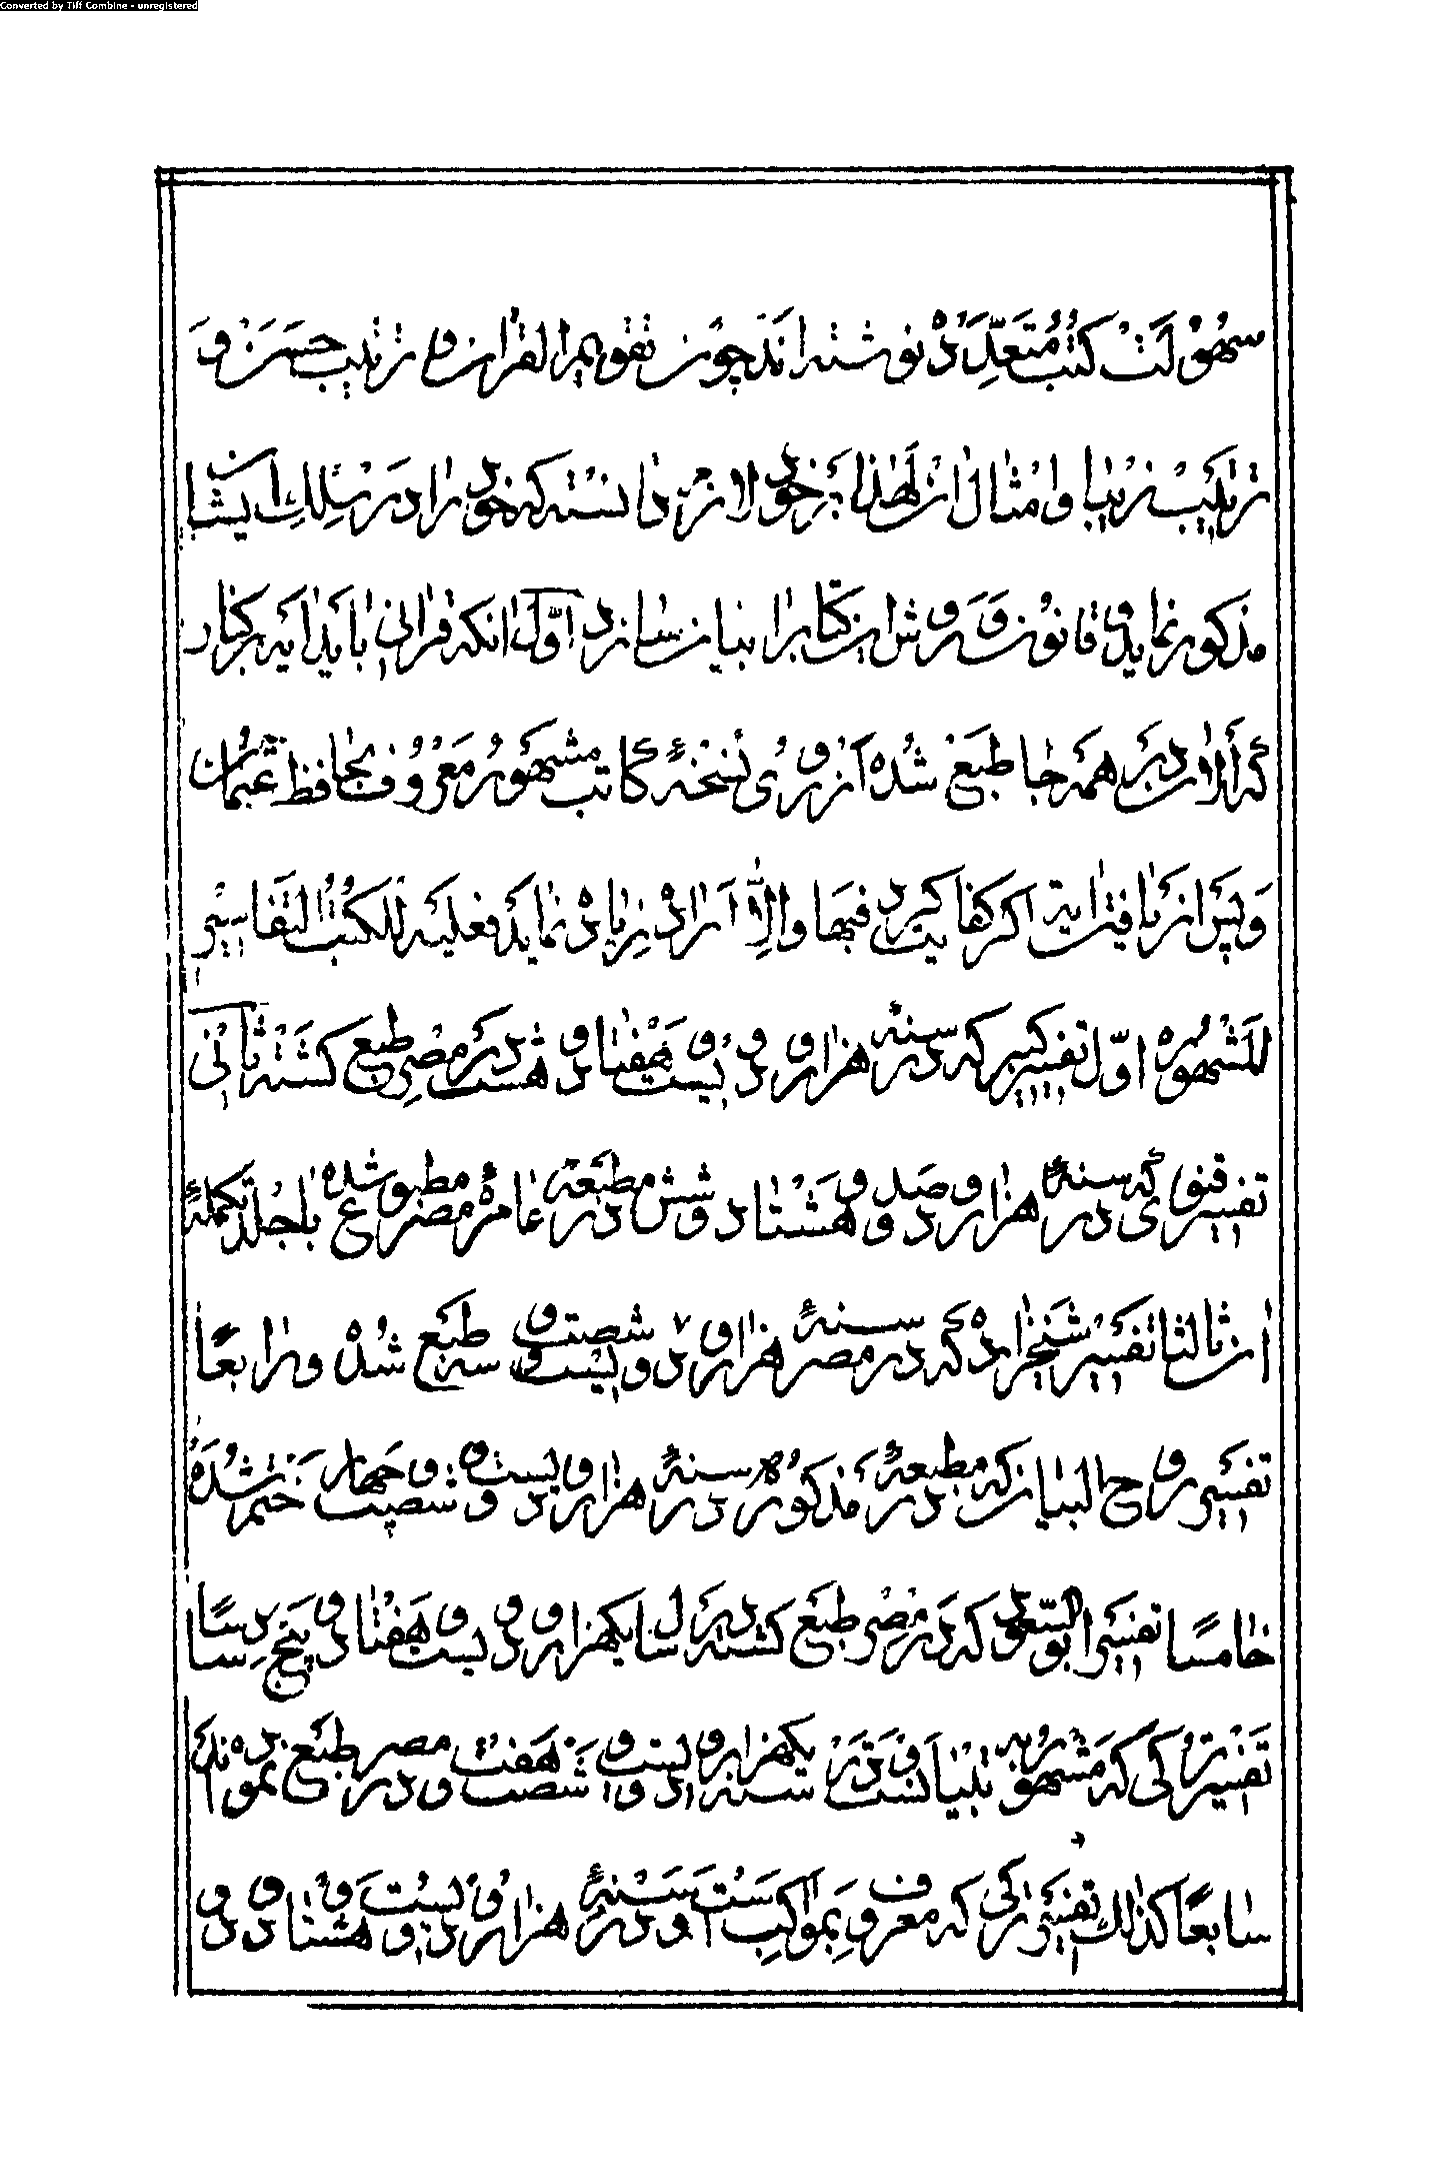 Converted by Tiff Combine - unregistered
سهولت کتب متعدده نوشته اند چون تقویم القران و ترتیب حسن و
ترکیب زیبا و امثال ان لهذا بر خود لازم دانسته که خود را در سلک ایشان
مذکور نماید قانون و روش این کتابرا بیان سازد اول انکه قرانی باید ایه برکنار
که أکران در همه جا طبع شده از روی نسخهٔ کاتب مشهور معروف بحافظ عثمان
و پس از یافتن ایه اگر کفایت کرد فبها والا اراده زیاده نماید فعلیه للکتب التفاسیر
المشهوره اول تفسیر کبیر که در سنه هزار و دو یست و هفتاد و هشت در مصر طبع کشته ثانی
تفسیر قنوی که در سنهٔ هزار و دو صد و هشتاد و شش در مطبعه عامرهٔ مصر مطبوع شده با جلد تکملهٔ
ان ثالثا تفسیر شیخزاده که در مصر سنهٔ هزار و دو یست و شصت و سه طبع شده و رابعاً
تفسیر روح البیان که در مطبعهٔ مذکوره در سنهٔ هزار و دو یست و شصت و چهار ختم شده
خامسا تفسیر ابو السعود که در مصر طبع کشته در سال یکهزار و دو یست و هفتاد و پنج سادسا
تفسیر ترکی که مشهور به تبیانست و در سنه یکهزار و دو یست و شصت و هفت در مصر طبع نموده اند
سابعاً کذلک تفسیر ترکی که معروف بمواکب است و در سنهٔ هزار و دو یست و هشتاد و دو